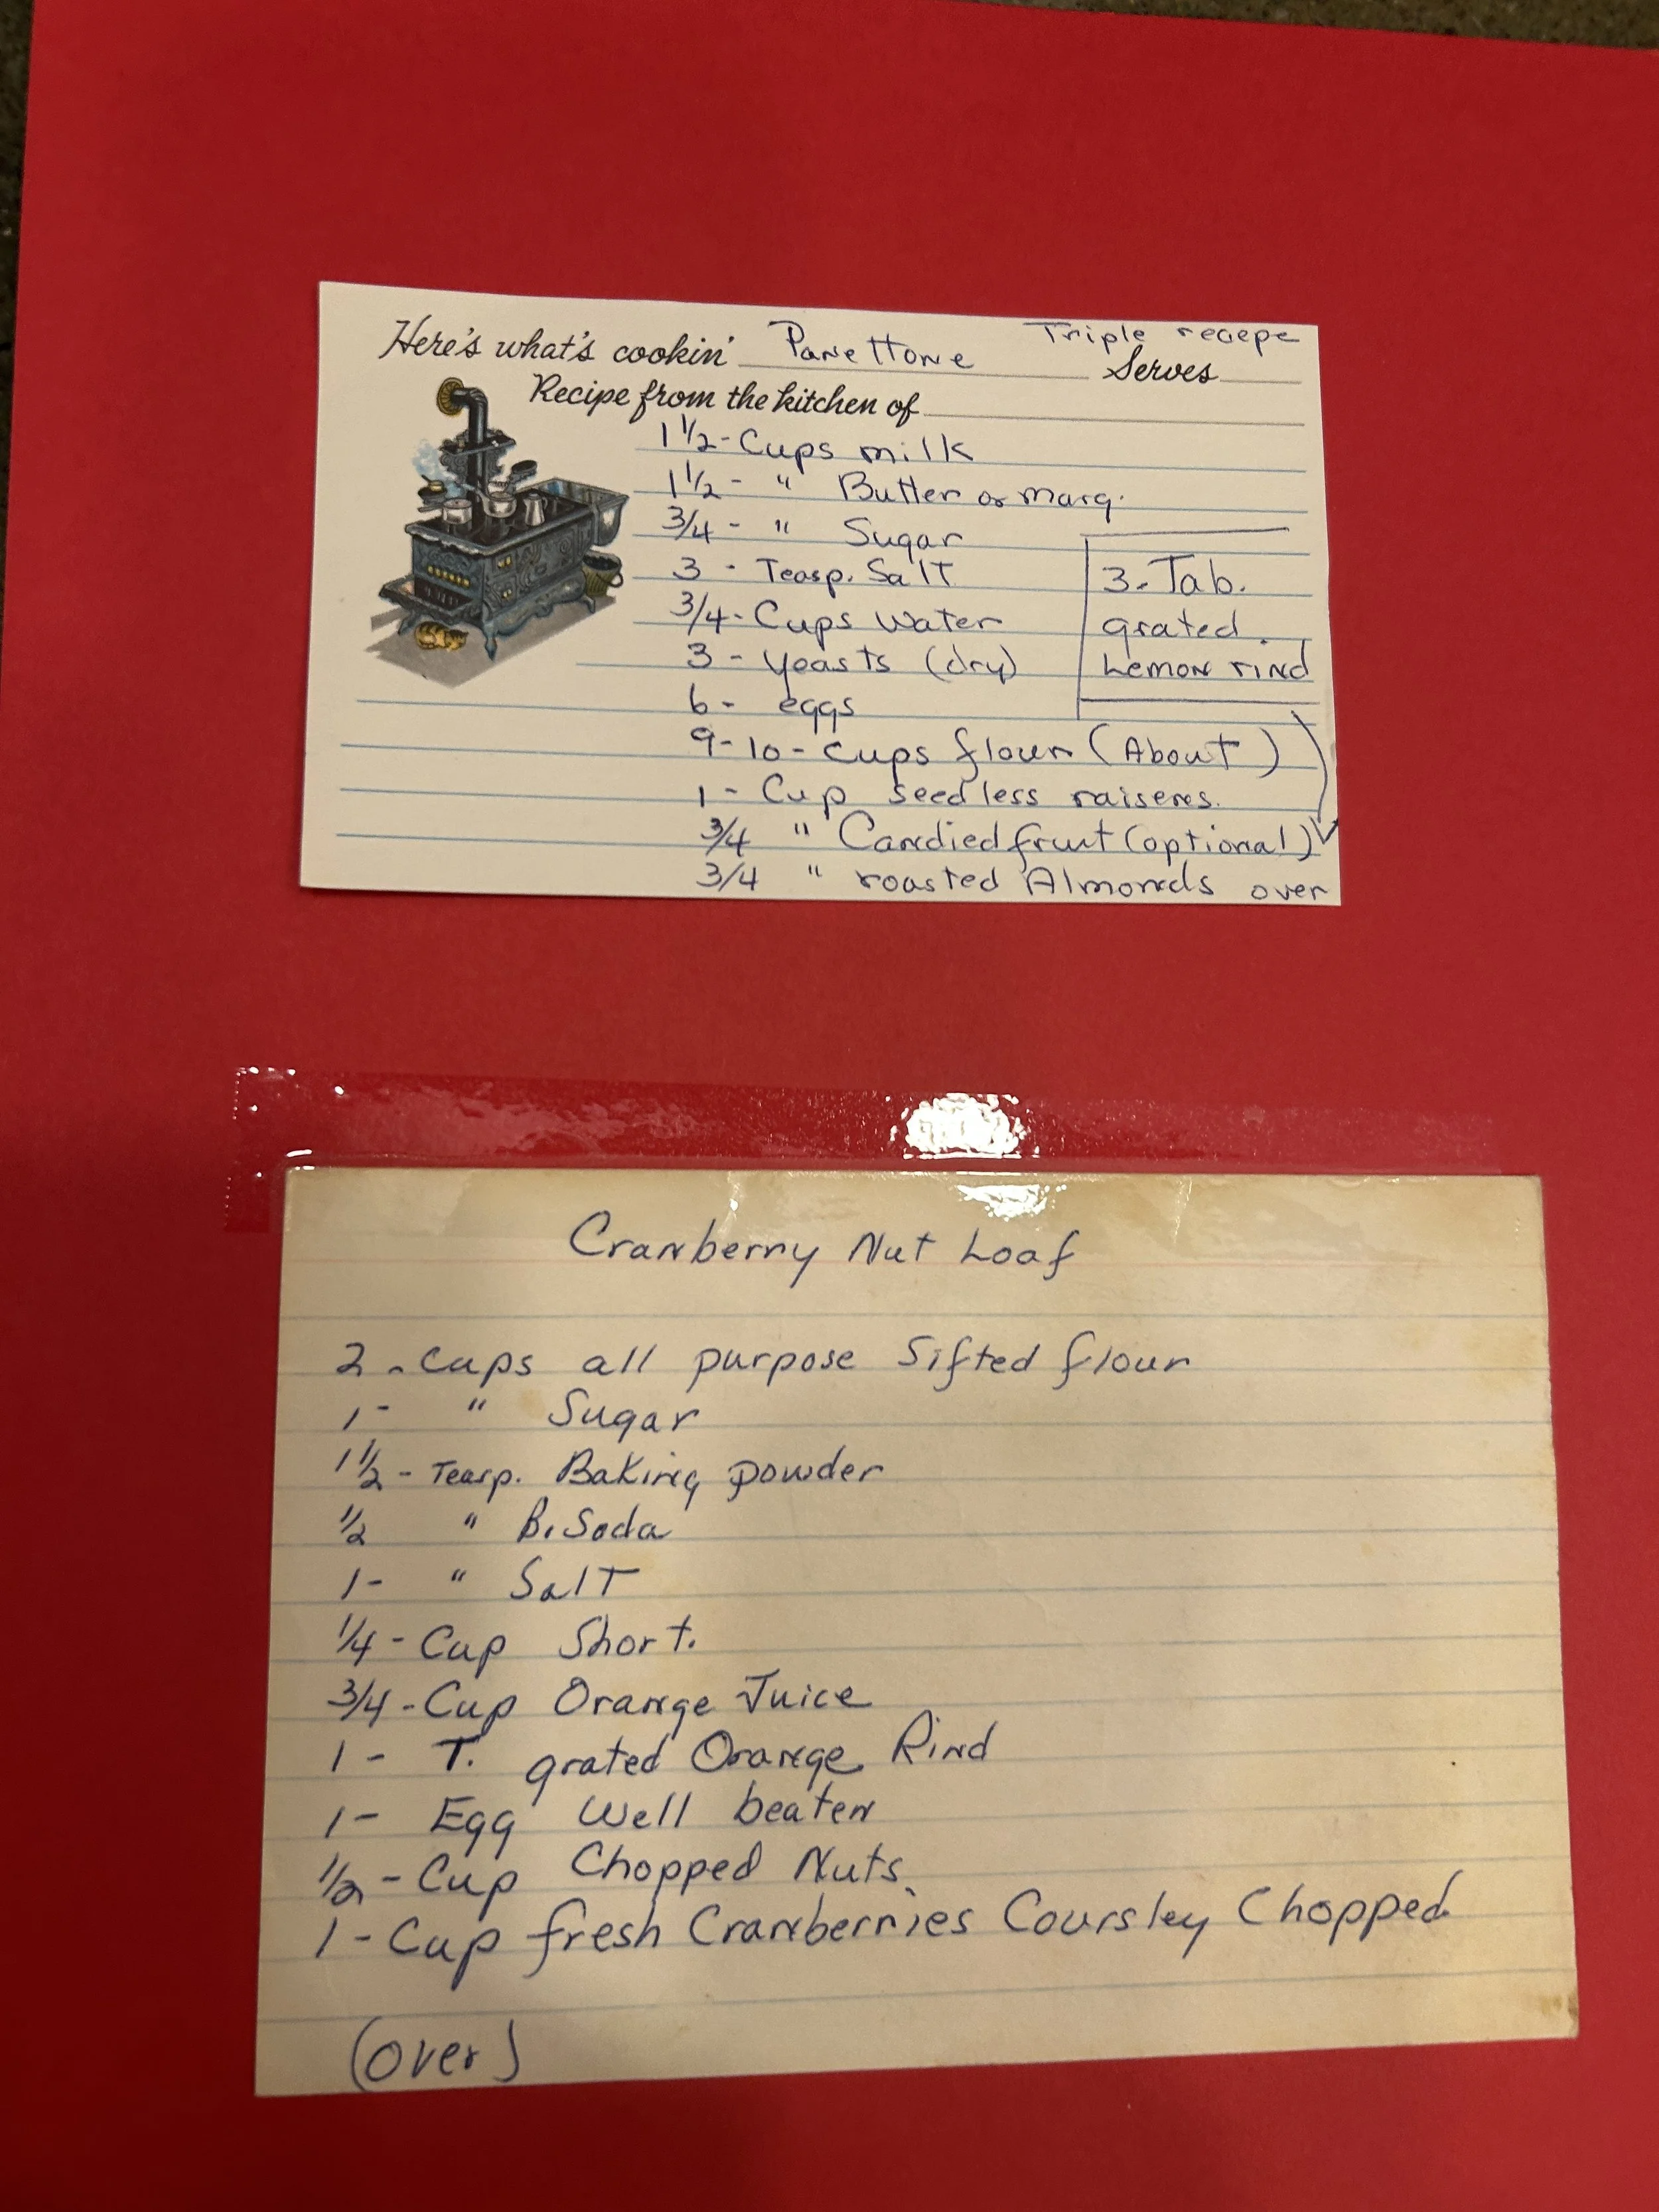 Here's what's cookin' Panettone Triple recepe
Serves
Recipe from the kitchen of
1 1/2 - Cups milk
1 1/2 - " Butter or marg.
3/4 - " Sugar
3 - Teasp. Salt
3/4 - Cups Water
3 - yeasts (dry)
6 - eggs
9-10 - cups flour (About)
1 - Cup seedless raisenes.
3/4 " Candied fruit (optional)
3/4 " roasted Almonds over
3 - Tab.
grated
Lemon rind
Cranberry Nut Loaf
2 - cups all purpose Sifted flour
1 - " Sugar
1 1/2 - Teasp. Baking powder
1/2 " B. Soda
1 - " Salt
1/4 - Cup Short.
3/4 - Cup Orange Juice
1 - T. grated Orange Rind
1 - Egg Well beaten
1/2 - Cup Chopped Nuts
1 - Cup fresh Cranberries Coursley Chopped
(over)